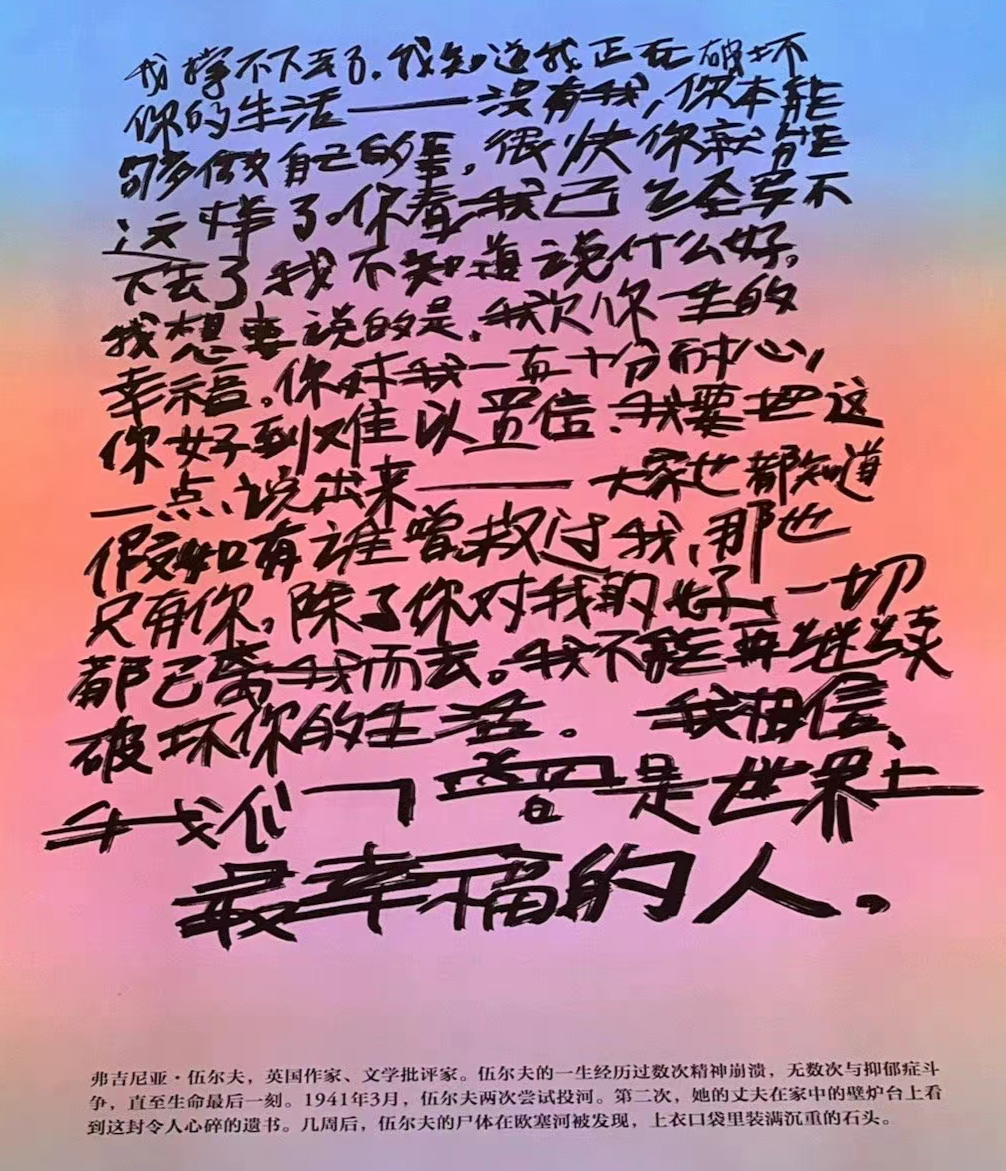 我撑不下去了。我知道我正在破坏
你的生活——没有我,你本能
够多做自己的事,很快你就能
这样了。你看,我已经写不
下去了,我不知道说什么好,
我想要说的是,我欠你一生的
幸福。你对我一直十分耐心,
你好到难以置信。我要把这
一点说出来——大家也都知道
假如有谁曾救过我,那也
只有你,除了你对我的好,一切
都已离我而去。我不能再继续
破坏你的生活。我相信,
我们曾是世界上
最幸福的人。
弗吉尼亚·伍尔夫,英国作家、文学批评家。伍尔夫的一生经历过数次精神崩溃,无数次与抑郁症斗
争,直至生命最后一刻。1941年3月,伍尔夫两次尝试投河。第二次,她的丈夫在家中的壁炉台上看
到这封令人心碎的遗书。几周后,伍尔夫的尸体在欧塞河被发现,上衣口袋里装满沉重的石头。